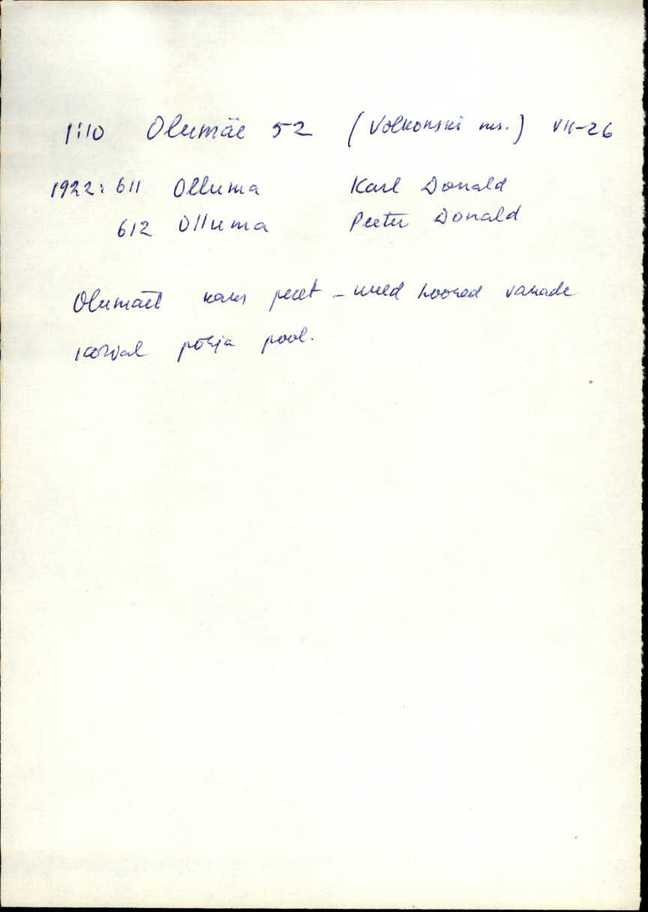 1:10 Olumäe 52 (Volkonski ms.) VII-26
1922: 611 Olluma Karl Donald
612 Olluma Peeter Donald
Olumäel kaks peret – uued hooned vanade
kõrval põhja pool.